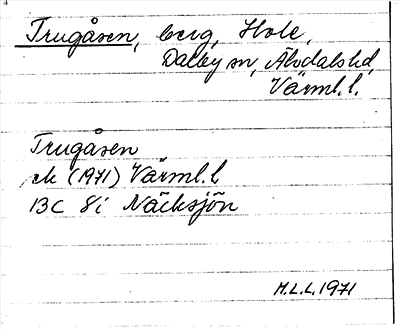 Trugåsen, berg, Hole,
Dalby sn, Älvdals hd,
Värml. l.
Trugåsen
ek (1971) Värml. l.
13C 8i Näcksjön
M.L.L. 1971